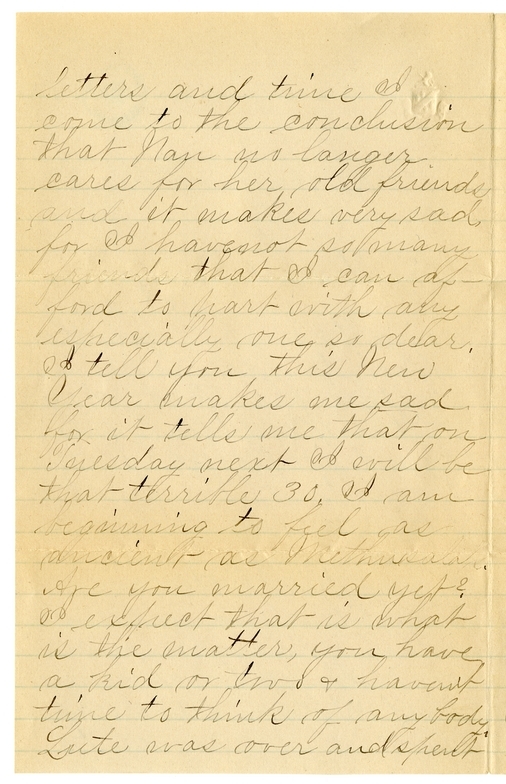 letters and time I
come to the conclusion
that Nan no longer
cares for her old friends
and it makes very sad
for I have not so many
friends that I can af-
ford to part with any
especially one so dear.
I tell you this New
Year makes me sad
for it tells me that on
Tuesday next I will be
that terrible 30. I am
beginning to feel as
ancient as Methusalah.
Are you married yet?
I expect that is what
is the matter, you have
a kid or two & havent
time to think of anybody.
Lute was over and spent